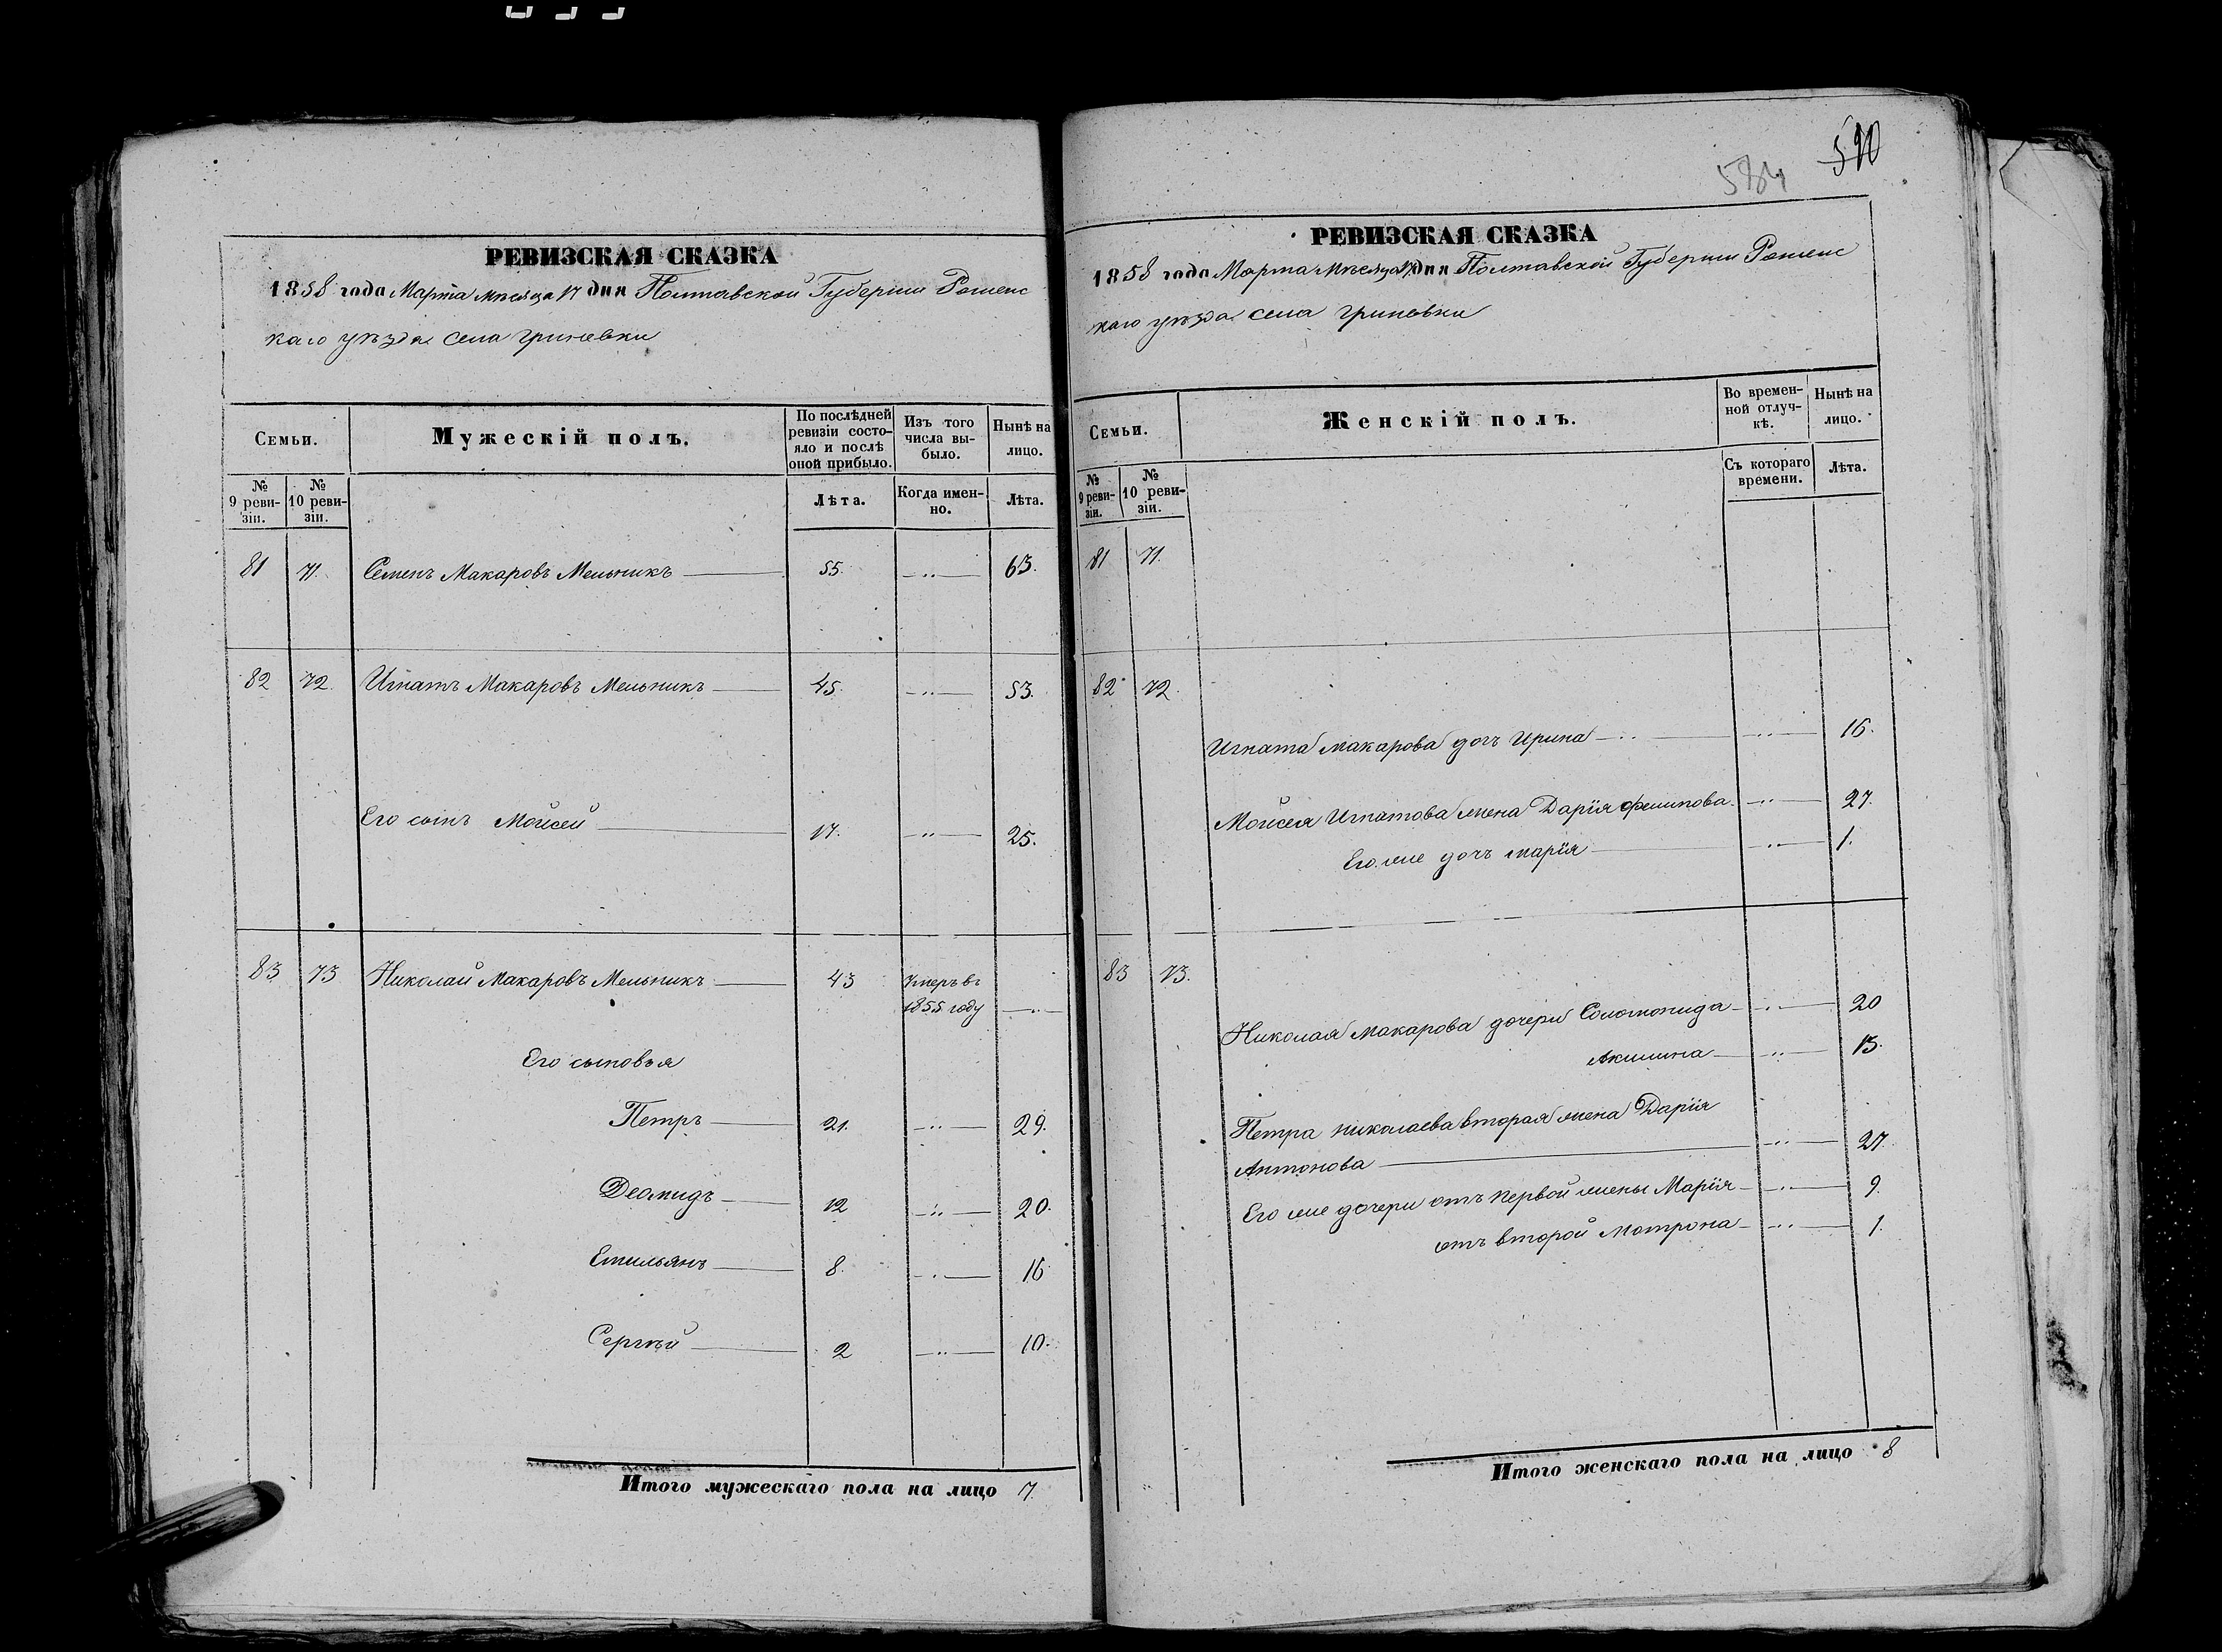 590
584
РЕВИЗСКАЯ СКАЗКА
1858 года Марта мѣсяца 17 дня Полтавской Губерніи Роменс
каго уѣзда села Гриневки
Семьи.
Мужескій полъ.
По послѣдней ревизіи состо-
яло и послѣ
оной прибыло.
Изъ того
числа вы-
было.
Нынѣ на
лицо.
№
9 реви-
зіи.
№
10 реви-
зіи.
Лѣта.
Когда имен-
но.
Лѣта.
81 71. Семенъ Макаровъ Мельникъ 55. —"— 63.
82 72. Игнатъ Макаровъ Мельникъ 45. —"— 53.
Его сынъ Мойсей 17. —"— 25.
83 73 Николай Макаровъ Мельникъ 43 Умеръ въ
1855 году —"—
Его сыновья
Петръ 21. —"— 29.
Деомидъ 12 —"— 20.
Емельянъ 8. —"— 16
Сергѣй 2 —"— 10.
Итого мужескаго пола на лицо 7.
РЕВИЗСКАЯ СКАЗКА
1858 года Марта мѣсяца 17 дня Полтавской Губерніи Роменс
каго уѣзда села Гриневки
Семьи.
Женскій полъ.
Во времен-
ной отлуч-
кѣ.
Нынѣ на
лицо.
№
9 реви-
зіи.
№
10 реви-
зіи.
Съ котораго
времени.
Лѣта.
81 71.
82 72.
Игната Макарова дочь Ирина —"— 16.
Мойсея Игнатова жена Дарія Филипова —"— 27.
Его же дочь Марія —"— 1.
83 73.
Николая Макарова дочери Соломонида —"— 20
Акилина —"— 15.
Петра Николаева вторая жена Дарія
Антонова —"— 27.
Его же дочери отъ первой жены Марія —"— 9.
отъ второй Мотрона —"— 1.
Итого женскаго пола на лицо 8